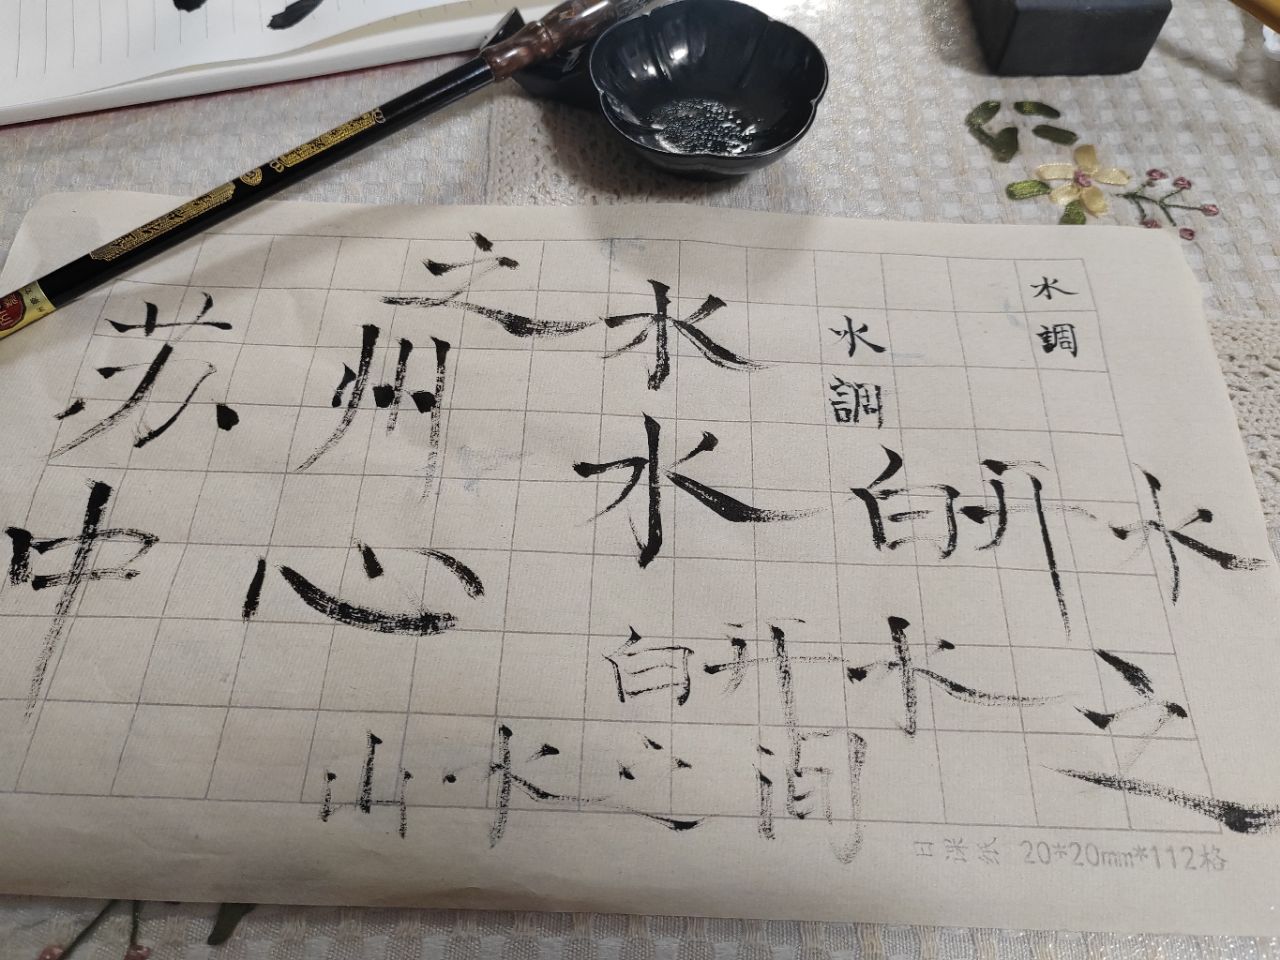 水調
水調
之
水
水
苏州
中心
白开水
白开水
之
山水之间
日课纸 20*20mm*112格